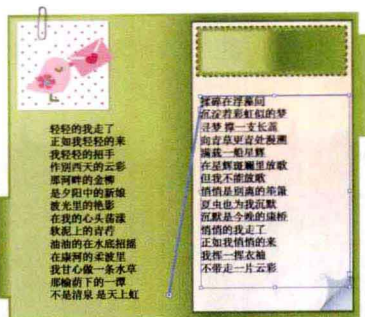 轻轻的我走了
正如我轻轻的来
我轻轻的招手
作别西天的云彩
那河畔的金柳
是夕阳中的新娘
波光里的艳影
在我的心头荡漾
软泥上的青荇
油油的在水底招摇
在康河的柔波里
我甘心做一条水草
那榆荫下的一潭
不是清泉 是天上虹
揉碎在浮藻间
沉淀着彩虹似的梦
寻梦 撑一支长蒿
向青草更青处漫溯
满载一船星辉
在星辉斑斓里放歌
但我不能放歌
悄悄是别离的笙箫
夏虫也为我沉默
沉默是今晚的康桥
悄悄的我走了
正如我悄悄的来
我挥一挥衣袖
不带走一片云彩